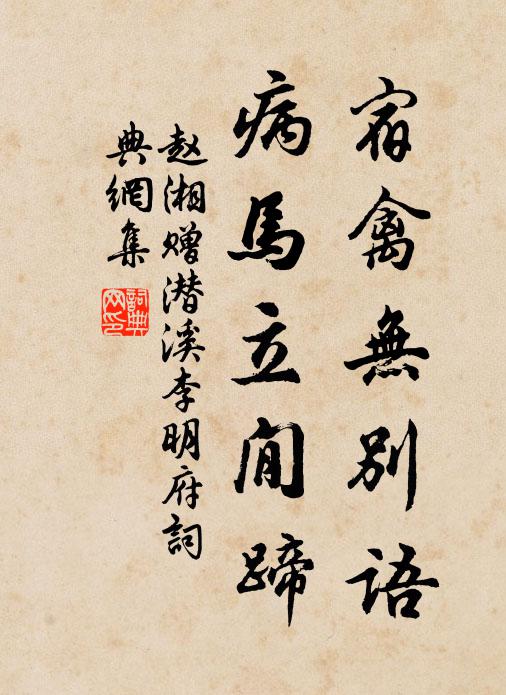 宿禽無別語
病馬立閒蹄
赵湘赠潜溪李明府詞
典網集
詞典网印